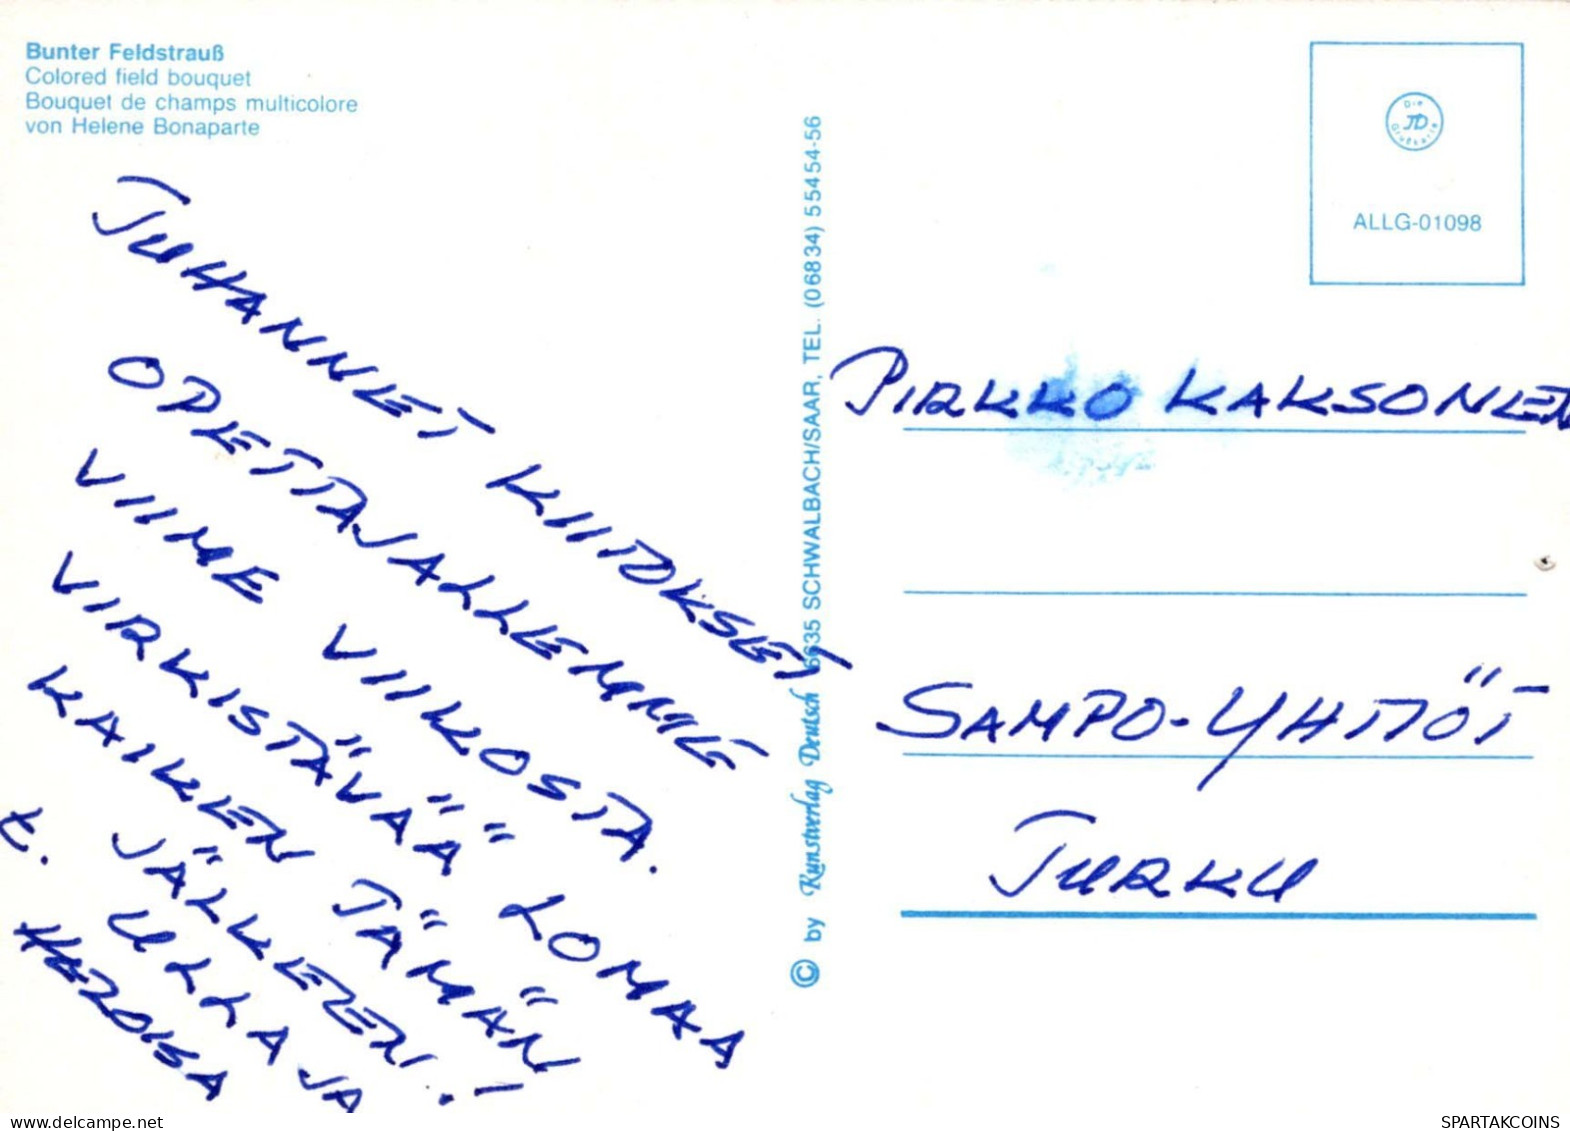 Bunter Feldstrauß
Colored field bouquet
Bouquet de champs multicolore
von Helene Bonaparte
JUHANNET KIITOKSET
OPETTAJALLEMME
VIIME VIIKOSTA.
VIRKISTÄVÄÄ LOMAA
KAIKEN TÄMÄN
JÄLKEEN!
t. ULLA JA
© by Kunstverlag Deutsch 6635 SCHWALBACH/SAAR, TEL. (06834) 55454-56
Die
JD
Grußkarte
ALLG-01098
PIRKKO KAKSONEN
SAMPO-YHTIÖT
TURKU
SPARTAKCOINS
delcampe.net